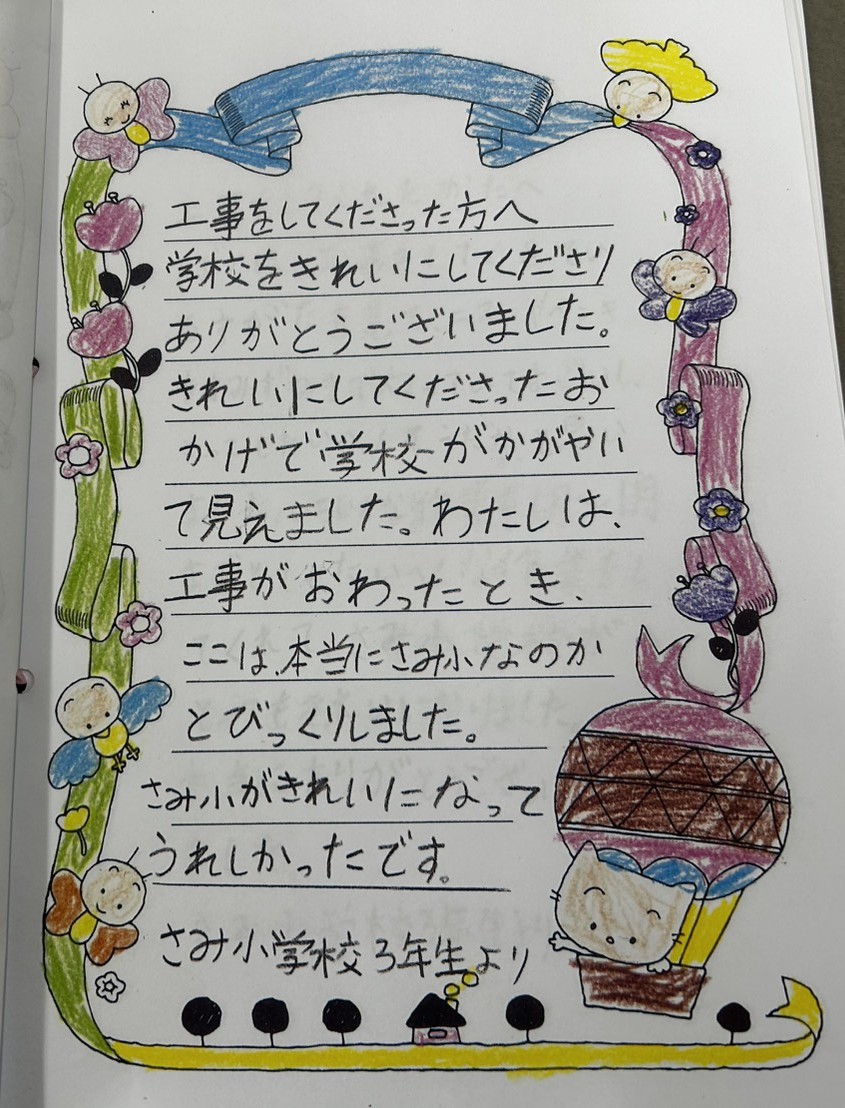 工事をしてくださった方へ
学校をきれいにしてくださり
ありがとうございました。
きれいにしてくださったお
かげで学校がかがやい
て見えました。わたしは、
工事がおわったとき、
ここは、本当にさみ小なのか
とびっくりしました。
さみ小がきれいになって
うれしかったです。
さみ小学校3年生より